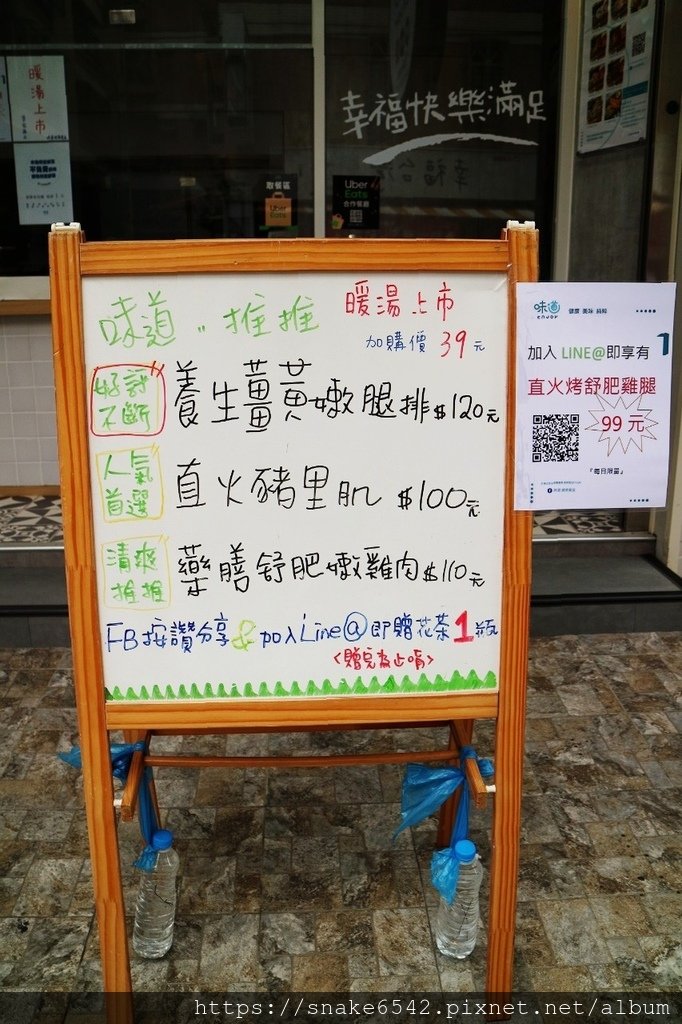 暖湯上市
幸福快樂滿足
取餐區
Uber Eats
Uber Eats
合作餐廳
味道..推推
暖湯上市
加購價 39元
好評不斷
養生薑黃嫩腿排$120元
人氣首選
直火豬里肌 $100元
清爽推推
藥膳舒肥嫩雞肉$110元
FB按讚分享&加入Line@即贈花茶1瓶
<贈完為止唷>
味道
健康 美味 純粹
加入 LINE@即享有
1
直火烤舒肥雞腿
99 元
『每日限量』
https://snake6542.pixnet.net/album